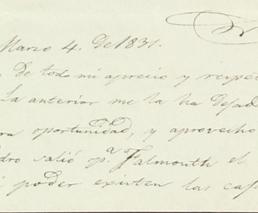 Marzo 4. de 1831.
De todo mi aprecio y respe
La anterior me la ha dejad
oportunidad, y aprovecho
dro salió pª. Falmouth el
poder existen las ca